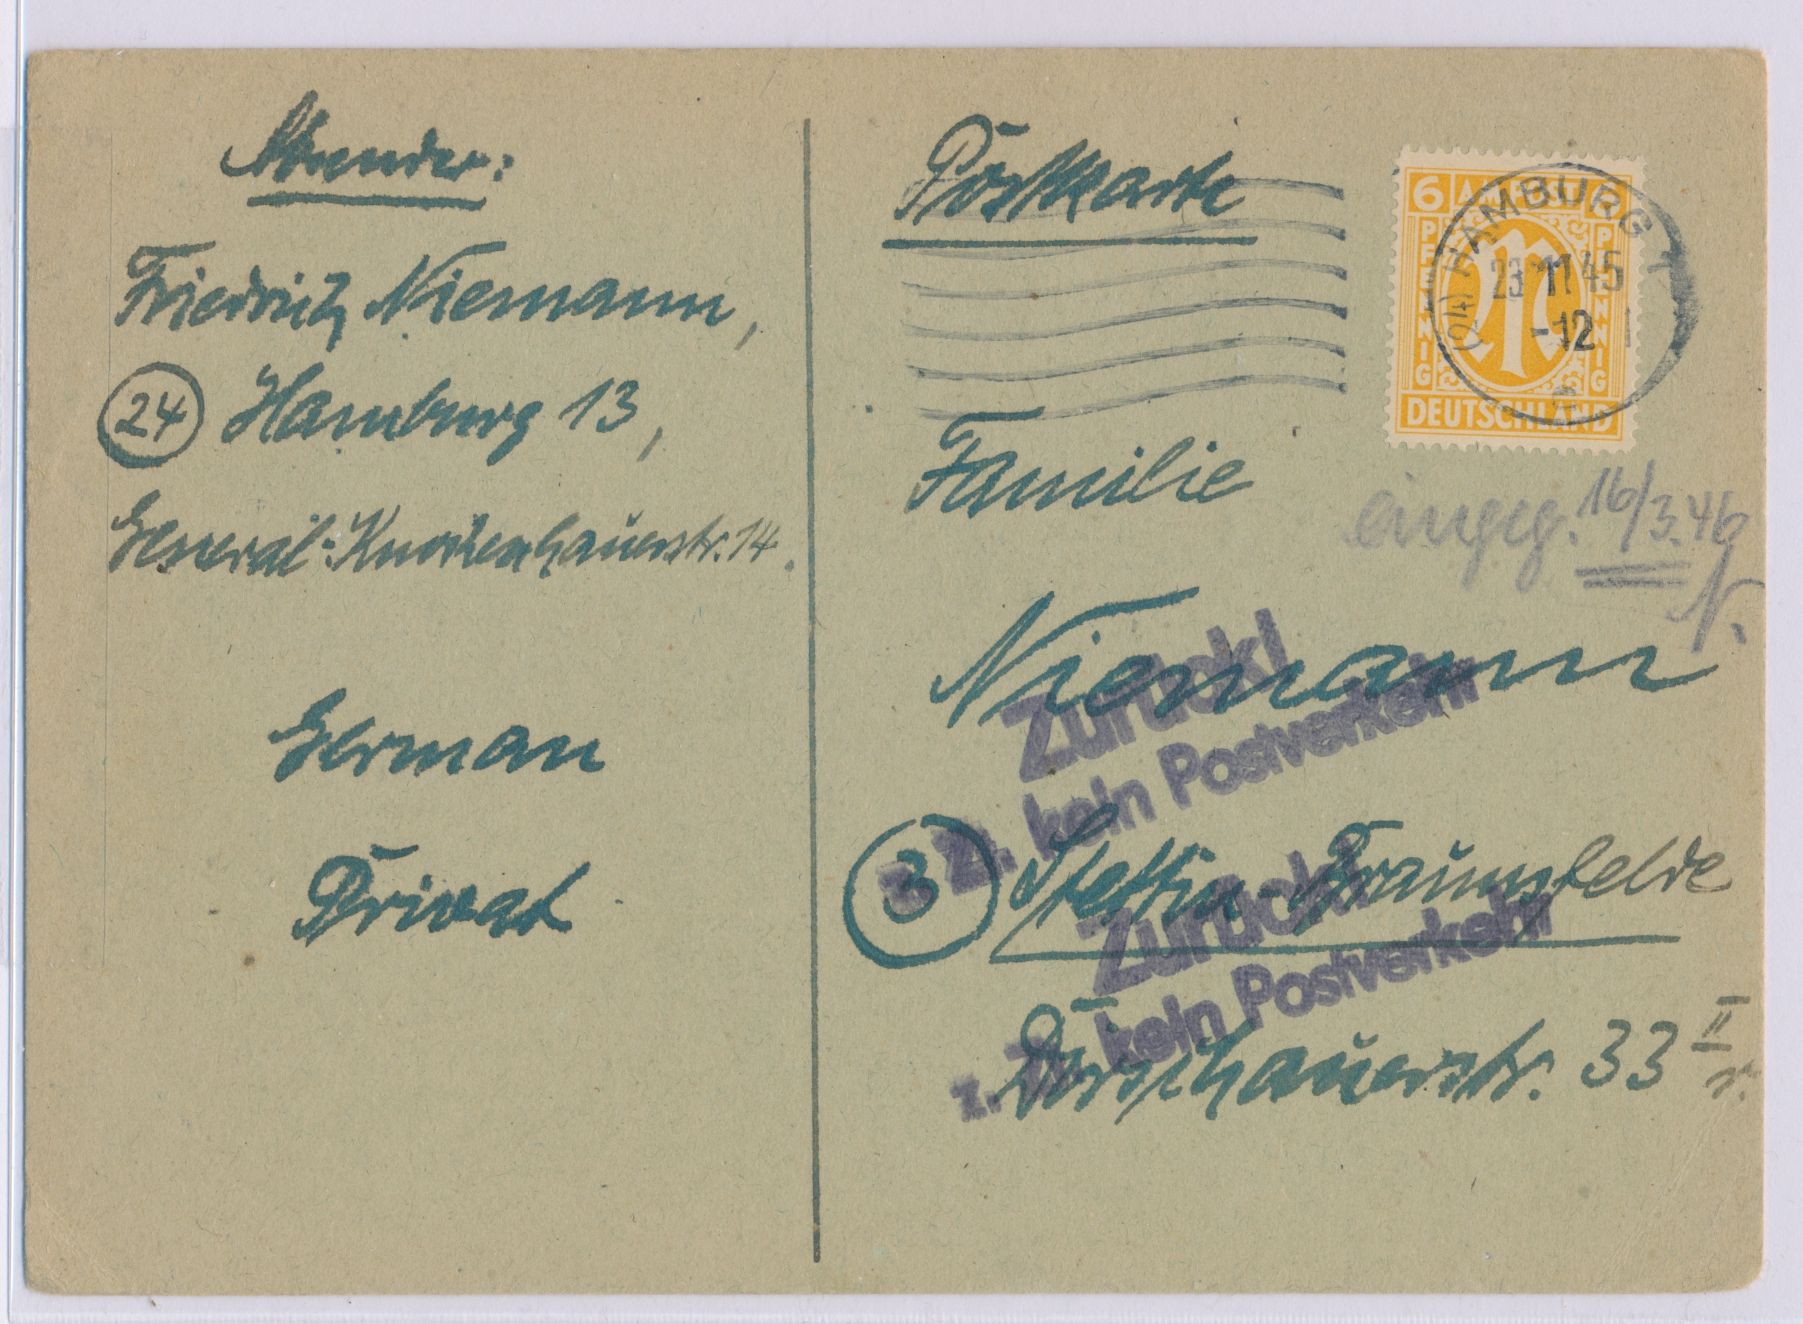 Absender:
Friedrich Niemann,
24 Hamburg 13,
General-Knochenhauerstr. 14.
German
Privat
Postkarte
6 A.M. POST 6
PFENNIG PFENNIG
DEUTSCHLAND
(24) HAMBURG 1
23 11 45
-12
Familie
eingeg. 16/3.46
N.
Niemann
Zurück!
z. Zt. kein Postverkehr
3 Stettin-Braunsfelde
Zurück!
z. Zt. kein Postverkehr
33 II r.